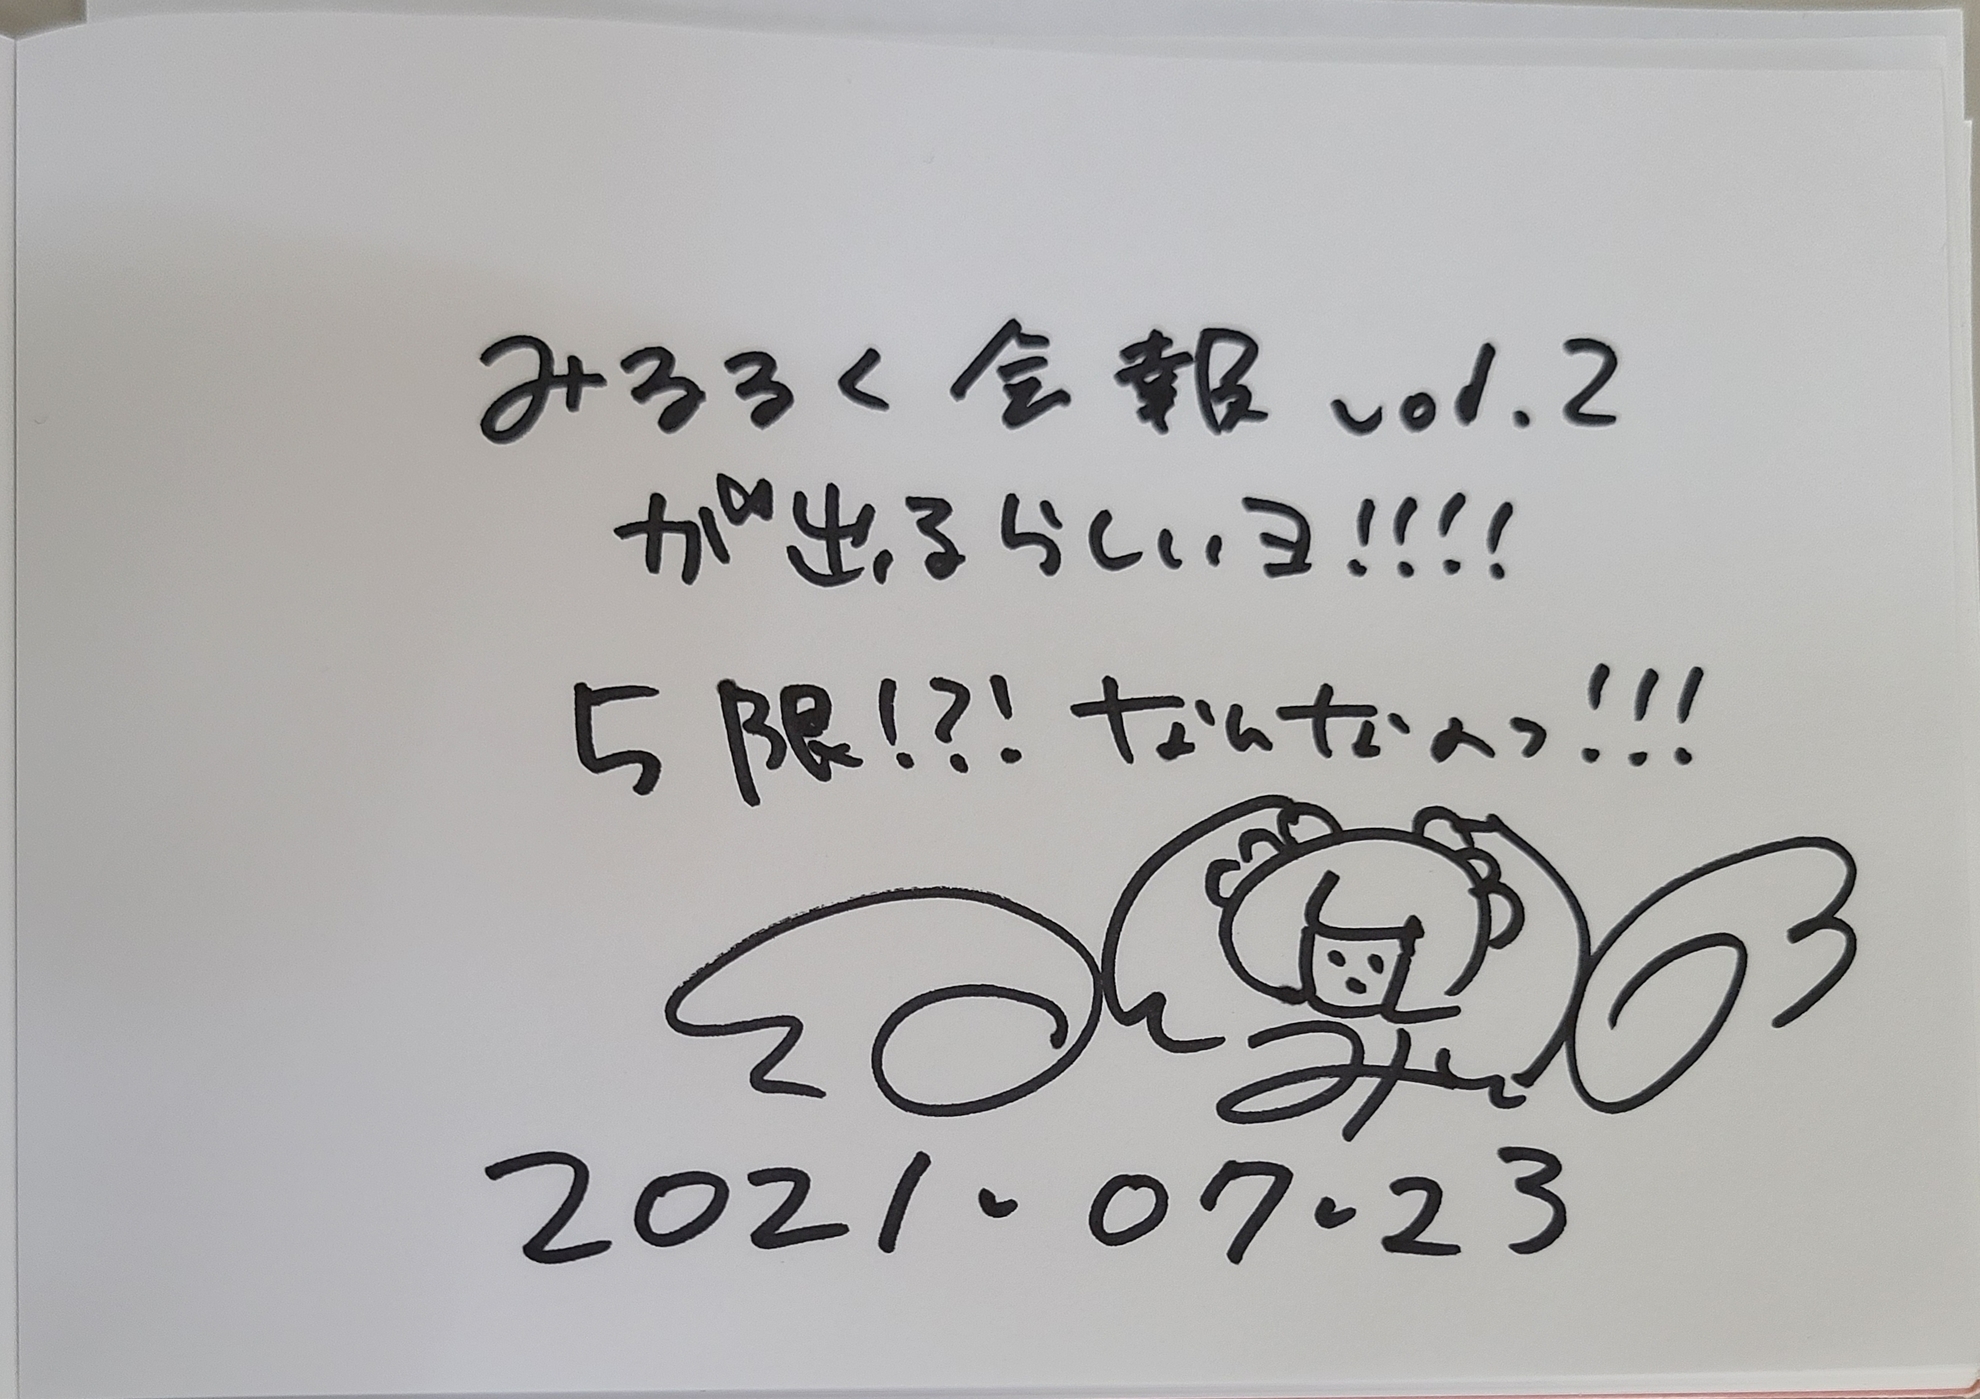 みるるく会報 vol.2
が出るらしいヨ!!!!
5限!?! なんなのっ!!!
みu
2021.07.23